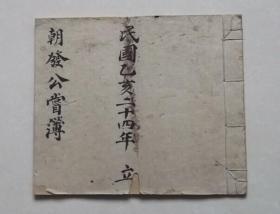 民國乙亥二十四年 立
朝發公嘗簿